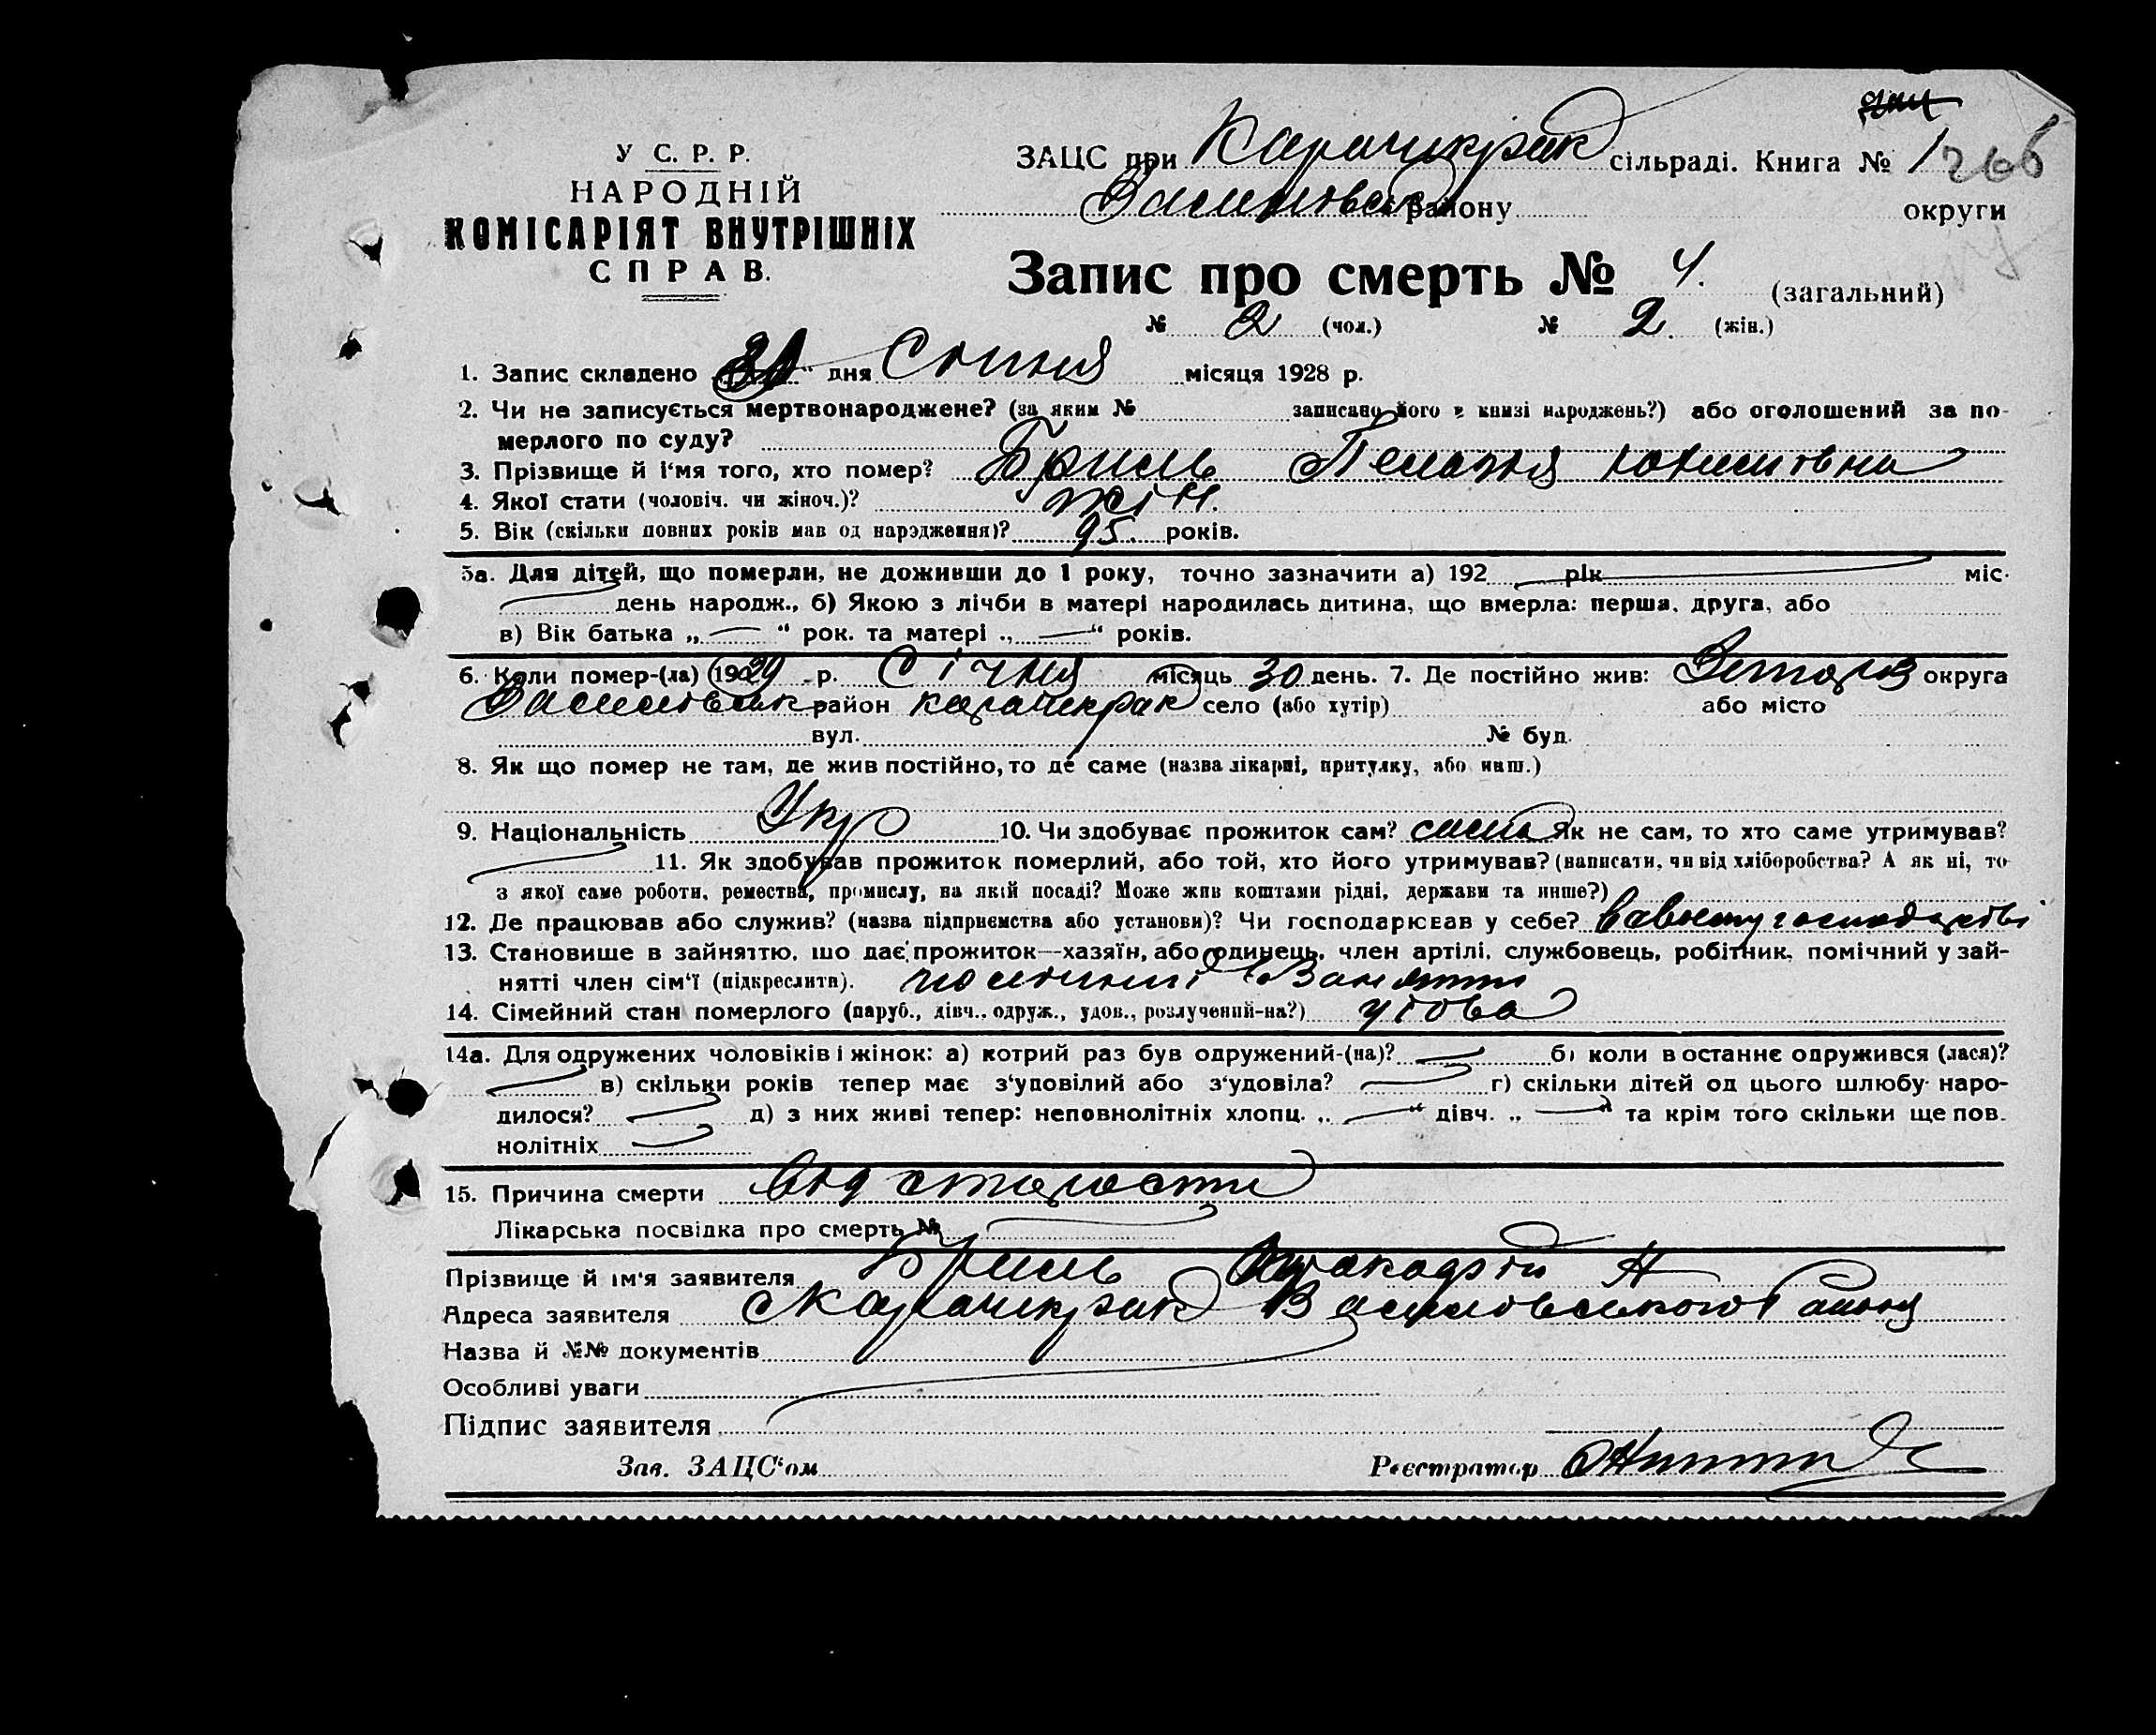 У С. Р. Р.
НАРОДНІЙ
КОМІСАРІЯТ ВНУТРІШНІХ
СПРАВ.
ЗАЦС при Карачикрак сільраді. Книга № 1 266
Василівськ району округи
Запис про смерть № 4. (загальний)
№ 2 (чол.) № 2. (жін.)
1. Запис складено „ “ дня Січня місяця 1928 р.
2. Чи не записується мертвонароджене? (за яким № записано його в книзі народжень?) або оголошений за по-
мерлого по суду?
3. Прізвище й ім'я того, хто помер? Бриль Пелагія
4. Якої стати (чоловіч. чи жіноч.)? жін.
5. Вік (скільки повних років мав од народження)? 95. років.
5а. Для дітей, що померли, не доживши до 1 року, точно зазначити а) 192 рік міс.
день народж., б) Якою з лічби в матері народилась дитина, що вмерла: перша, друга, або
в) Вік батька „ — “ рок. та матері „ — “ років.
6. Коли помер-(ла) 1929 р. Січня місяць 30 день. 7. Де постійно жив: Запоріз округа
Василівськ район Карачикрак село (або хутір) або місто
вул. № буд.
8. Як що помер не там, де жив постійно, то де саме (назва лікарні, притулку, або инш.)
9. Національність Укр 10. Чи здобуває прожиток сам? сама Як не сам, то хто саме утримував?
11. Як здобував прожиток померлий, або той, хто його утримував? (написати, чи від хліборобства? А як ні, то
з якої саме роботи, ремества, промислу, на якій посаді? Може жив коштами рідні, держави та инше?)
12. Де працював або служив? (назва підприємства або установи)? Чи господарював у себе? в своєму господарстві
13. Становище в зайняттю, що дає прожиток—хазяїн, або одинець, член артілі, службовець, робітник, помічний у зай-
нятті член сім'ї (підкреслити). помічниц в занятті
14. Сімейний стан померлого (паруб., дівч., одруж., удов., розлучений-на?) удова
14а. Для одружених чоловіків і жінок: а) котрий раз був одружений-(на)? — б) коли в останнє одружився (лася)?
— в) скільки років тепер має з'удовілий або з'удовіла? — г) скільки дітей од цього шлюбу наро-
дилося? — д) з них живі тепер: неповнолітніх хлопц. „ — “ дівч. „ — “ та крім того скільки ще пов-
нолітніх —
15. Причина смерти від старости
Лікарська посвідка про смерть №
Прізвище й ім'я заявителя Бриль
Адреса заявителя с Карачикрак Василівського Району
Назва й №№ документів
Особливі уваги
Підпис заявителя
Зав. ЗАЦС'ом Реєстратор